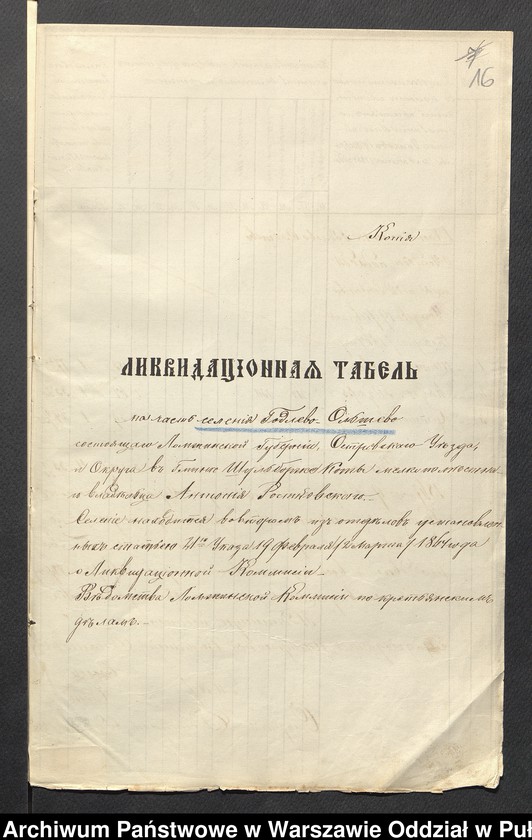 16
Копія
ЛИКВИДАЦІОННАЯ ТАБЕЛЬ
на часть селенія Годлево-Ольшево
состоящаго Ломжинской Губерніи, Островскаго Уѣзда,
и Округа въ Гминѣ Шульборже Коты мелкопомѣстна
владѣльца Антонія Ростковскаго.
Селеніе находится во второмъ изъ отдѣловъ установлен-
ныхъ статьею 21ю Указа 19 Февраля /2 Марта/ 1864 года
о Ликвидаціонной Коммисіи.
Вѣдомства Ломжинской Коммисіи по крестьянскимъ
дѣламъ.-
Archiwum Państwowe w Warszawie Oddział w Pu